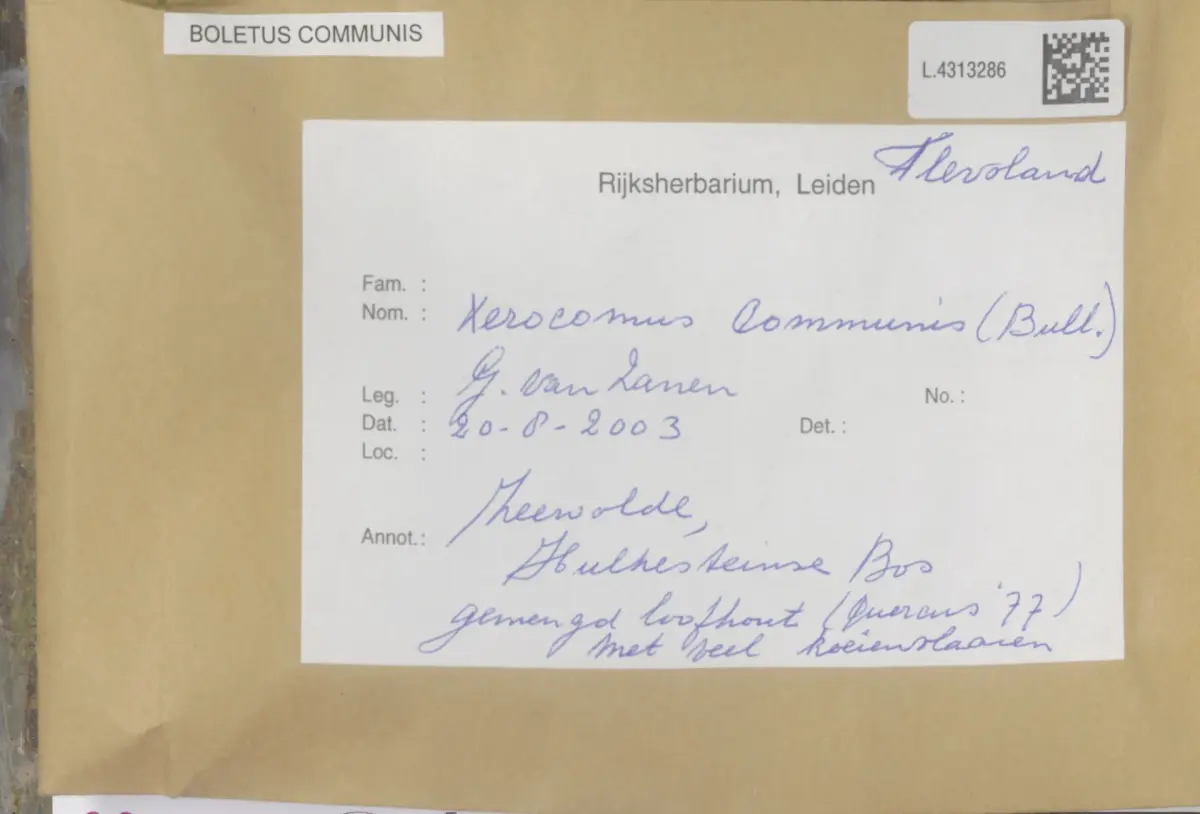 BOLETUS COMMUNIS
L.4313286
Flevoland
Rijksherbarium, Leiden
Fam. :
Nom. : Xerocomus Communis (Bull.)
Leg. : G. van Zanen No. :
Dat. : 20-8-2003 Det. :
Loc. :
Zeewolde,
Annot.:
Hulkesteinse Bos
gemengd loofhout (Quercus '77)
met veel koeienvlaaien